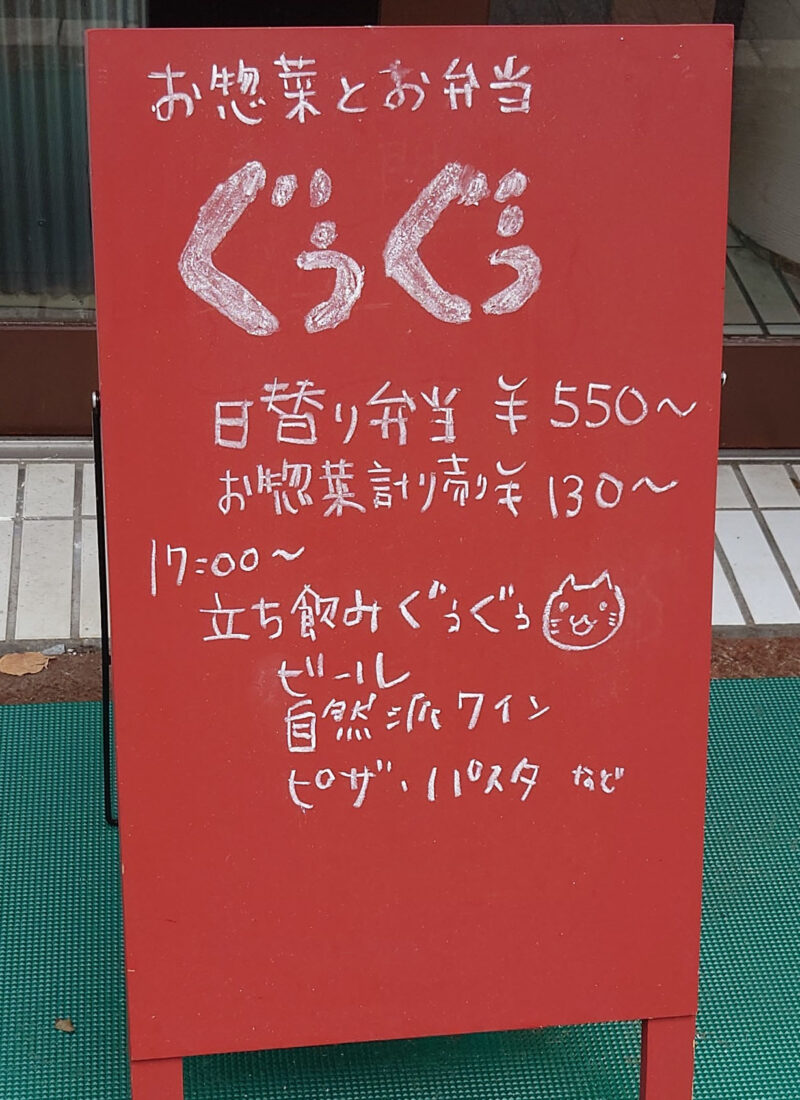 お惣菜とお弁当
ぐぅぐぅ
日替り弁当 ¥550〜
お惣菜計り売り¥130〜
17:00〜
立ち飲みぐぅぐぅ
ビール
自然派ワイン
ピザ、パスタ など